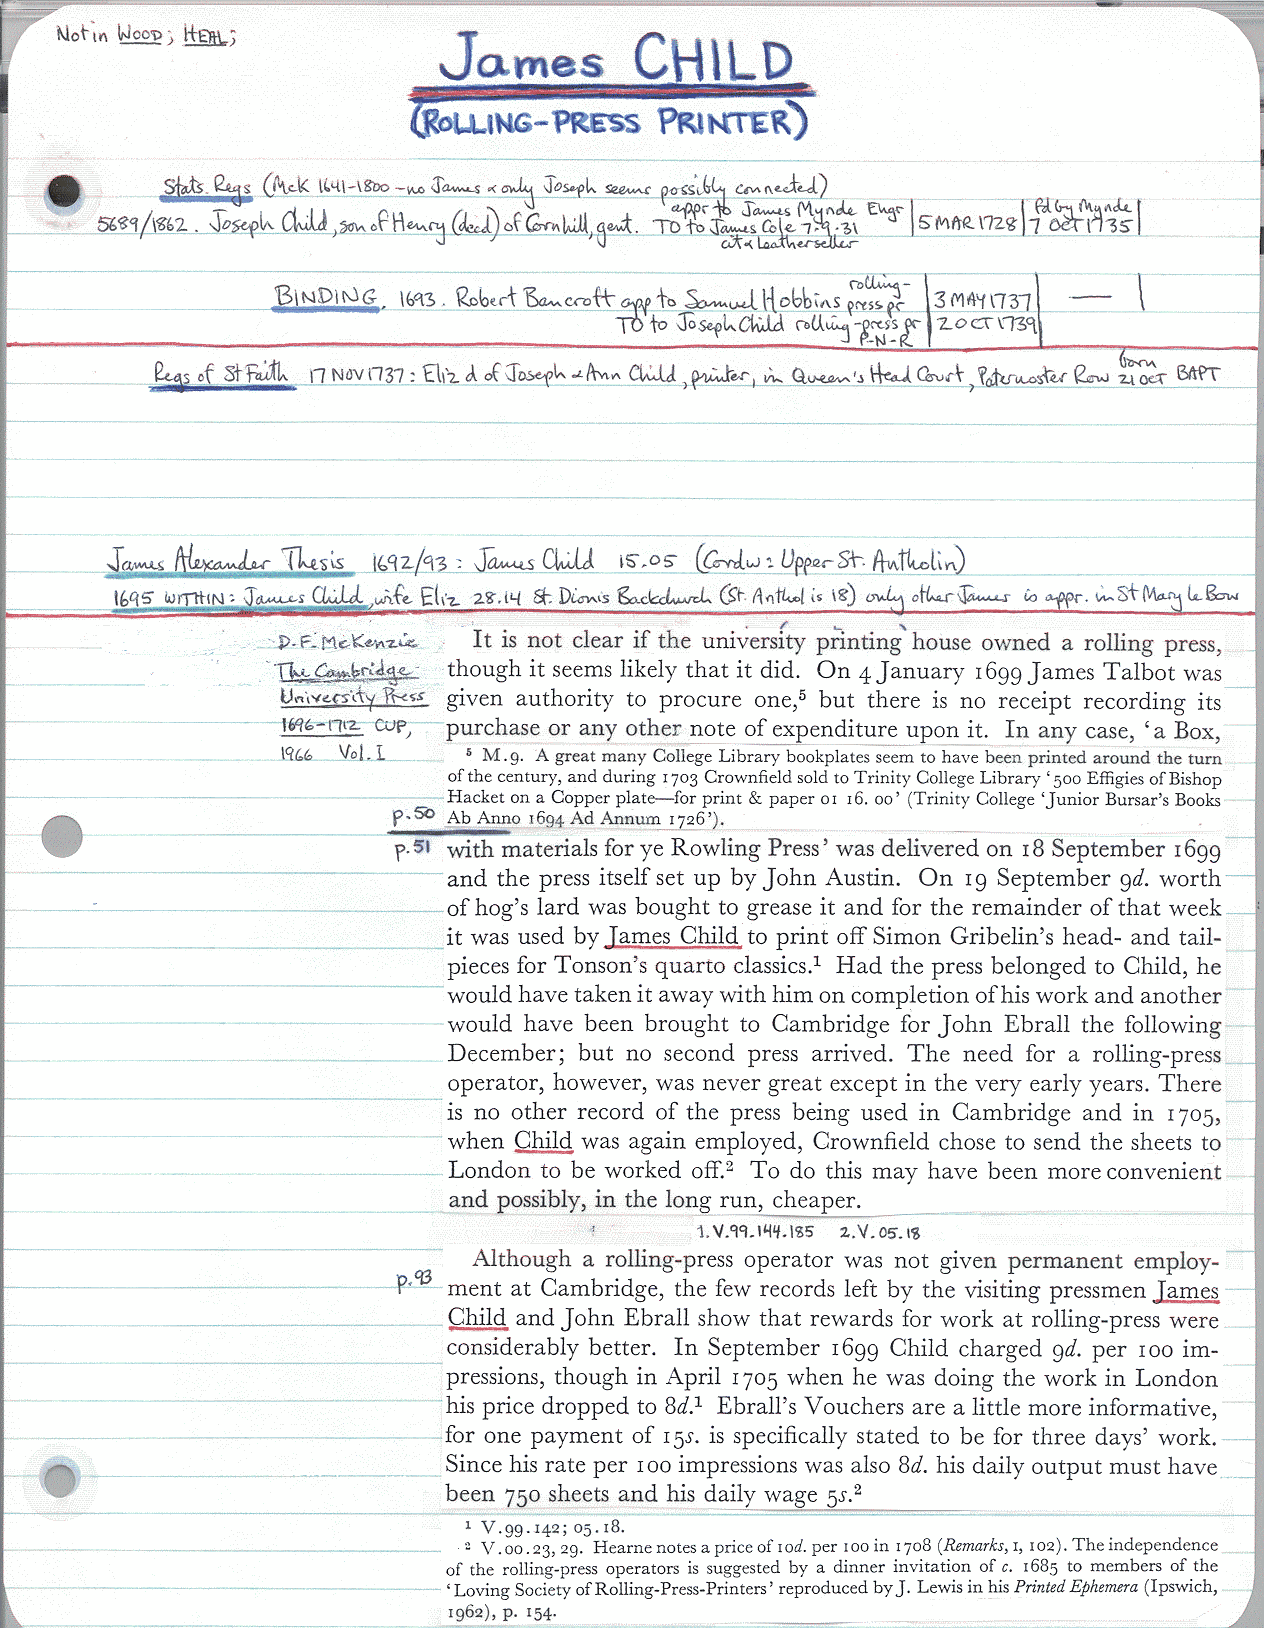 Not in WOOD; HEAL;
James CHILD
(ROLLING-PRESS PRINTER)
Stats. Regs (McK 1641-1800 - no James & only Joseph seems possibly connected)
5689/1862. Joseph Child, son of Henry (decd) of Cornhill, gent. appr to James Mynde Engr | 5 MAR 1728 | Fd by Mynde 7 OCT 1735 |
TO to James Cole 7.9.31
cit & Leatherseller
BINDING. 1693. Robert Bancroft app to Samuel Hobbins rolling-press pr | 3 MAY 1737 | — |
TO to Joseph Child rolling-press pr | 2 OCT 1739 |
P-N-R
Regs of St Faith 17 NOV 1737: Eliz d of Joseph & Ann Child, printer, in Queen's Head Court, Paternoster Row born 21 OCT BAPT
James Alexander Thesis 1692/93: James Child 15.05 (Cordw: Upper St. Antholin)
1695 WITHIN: James Child, wife Eliz 28.14 St. Dionis Backchurch (St. Anthol is 18) only other James is appr. in St Mary le Bow
D. F. McKenzie
The Cambridge
University Press
1696-1712 CUP,
1966 Vol. I
It is not clear if the university printing house owned a rolling press,
though it seems likely that it did. On 4 January 1699 James Talbot was
given authority to procure one,⁵ but there is no receipt recording its
purchase or any other note of expenditure upon it. In any case, ‘a Box,
⁵ M.9. A great many College Library bookplates seem to have been printed around the turn
of the century, and during 1703 Crownfield sold to Trinity College Library ‘500 Effigies of Bishop
Hacket on a Copper plate—for print & paper 01 16. 00’ (Trinity College ‘Junior Bursar's Books
p.50 Ab Anno 1694 Ad Annum 1726’).
p.51 with materials for ye Rowling Press’ was delivered on 18 September 1699
and the press itself set up by John Austin. On 19 September 9d. worth
of hog's lard was bought to grease it and for the remainder of that week
it was used by James Child to print off Simon Gribelin's head- and tail-
pieces for Tonson's quarto classics.¹ Had the press belonged to Child, he
would have taken it away with him on completion of his work and another
would have been brought to Cambridge for John Ebrall the following
December; but no second press arrived. The need for a rolling-press
operator, however, was never great except in the very early years. There
is no other record of the press being used in Cambridge and in 1705,
when Child was again employed, Crownfield chose to send the sheets to
London to be worked off.² To do this may have been more convenient
and possibly, in the long run, cheaper.
1.V.99.144.185 2.V.05.18
Although a rolling-press operator was not given permanent employ-
p.93 ment at Cambridge, the few records left by the visiting pressmen James
Child and John Ebrall show that rewards for work at rolling-press were
considerably better. In September 1699 Child charged 9d. per 100 im-
pressions, though in April 1705 when he was doing the work in London
his price dropped to 8d.¹ Ebrall's Vouchers are a little more informative,
for one payment of 15s. is specifically stated to be for three days' work.
Since his rate per 100 impressions was also 8d. his daily output must have
been 750 sheets and his daily wage 5s.²
¹ V.99.142; 05.18.
² V.00.23, 29. Hearne notes a price of 10d. per 100 in 1708 (Remarks, I, 102). The independence
of the rolling-press operators is suggested by a dinner invitation of c. 1685 to members of the
‘Loving Society of Rolling-Press-Printers’ reproduced by J. Lewis in his Printed Ephemera (Ipswich,
1962), p. 154.